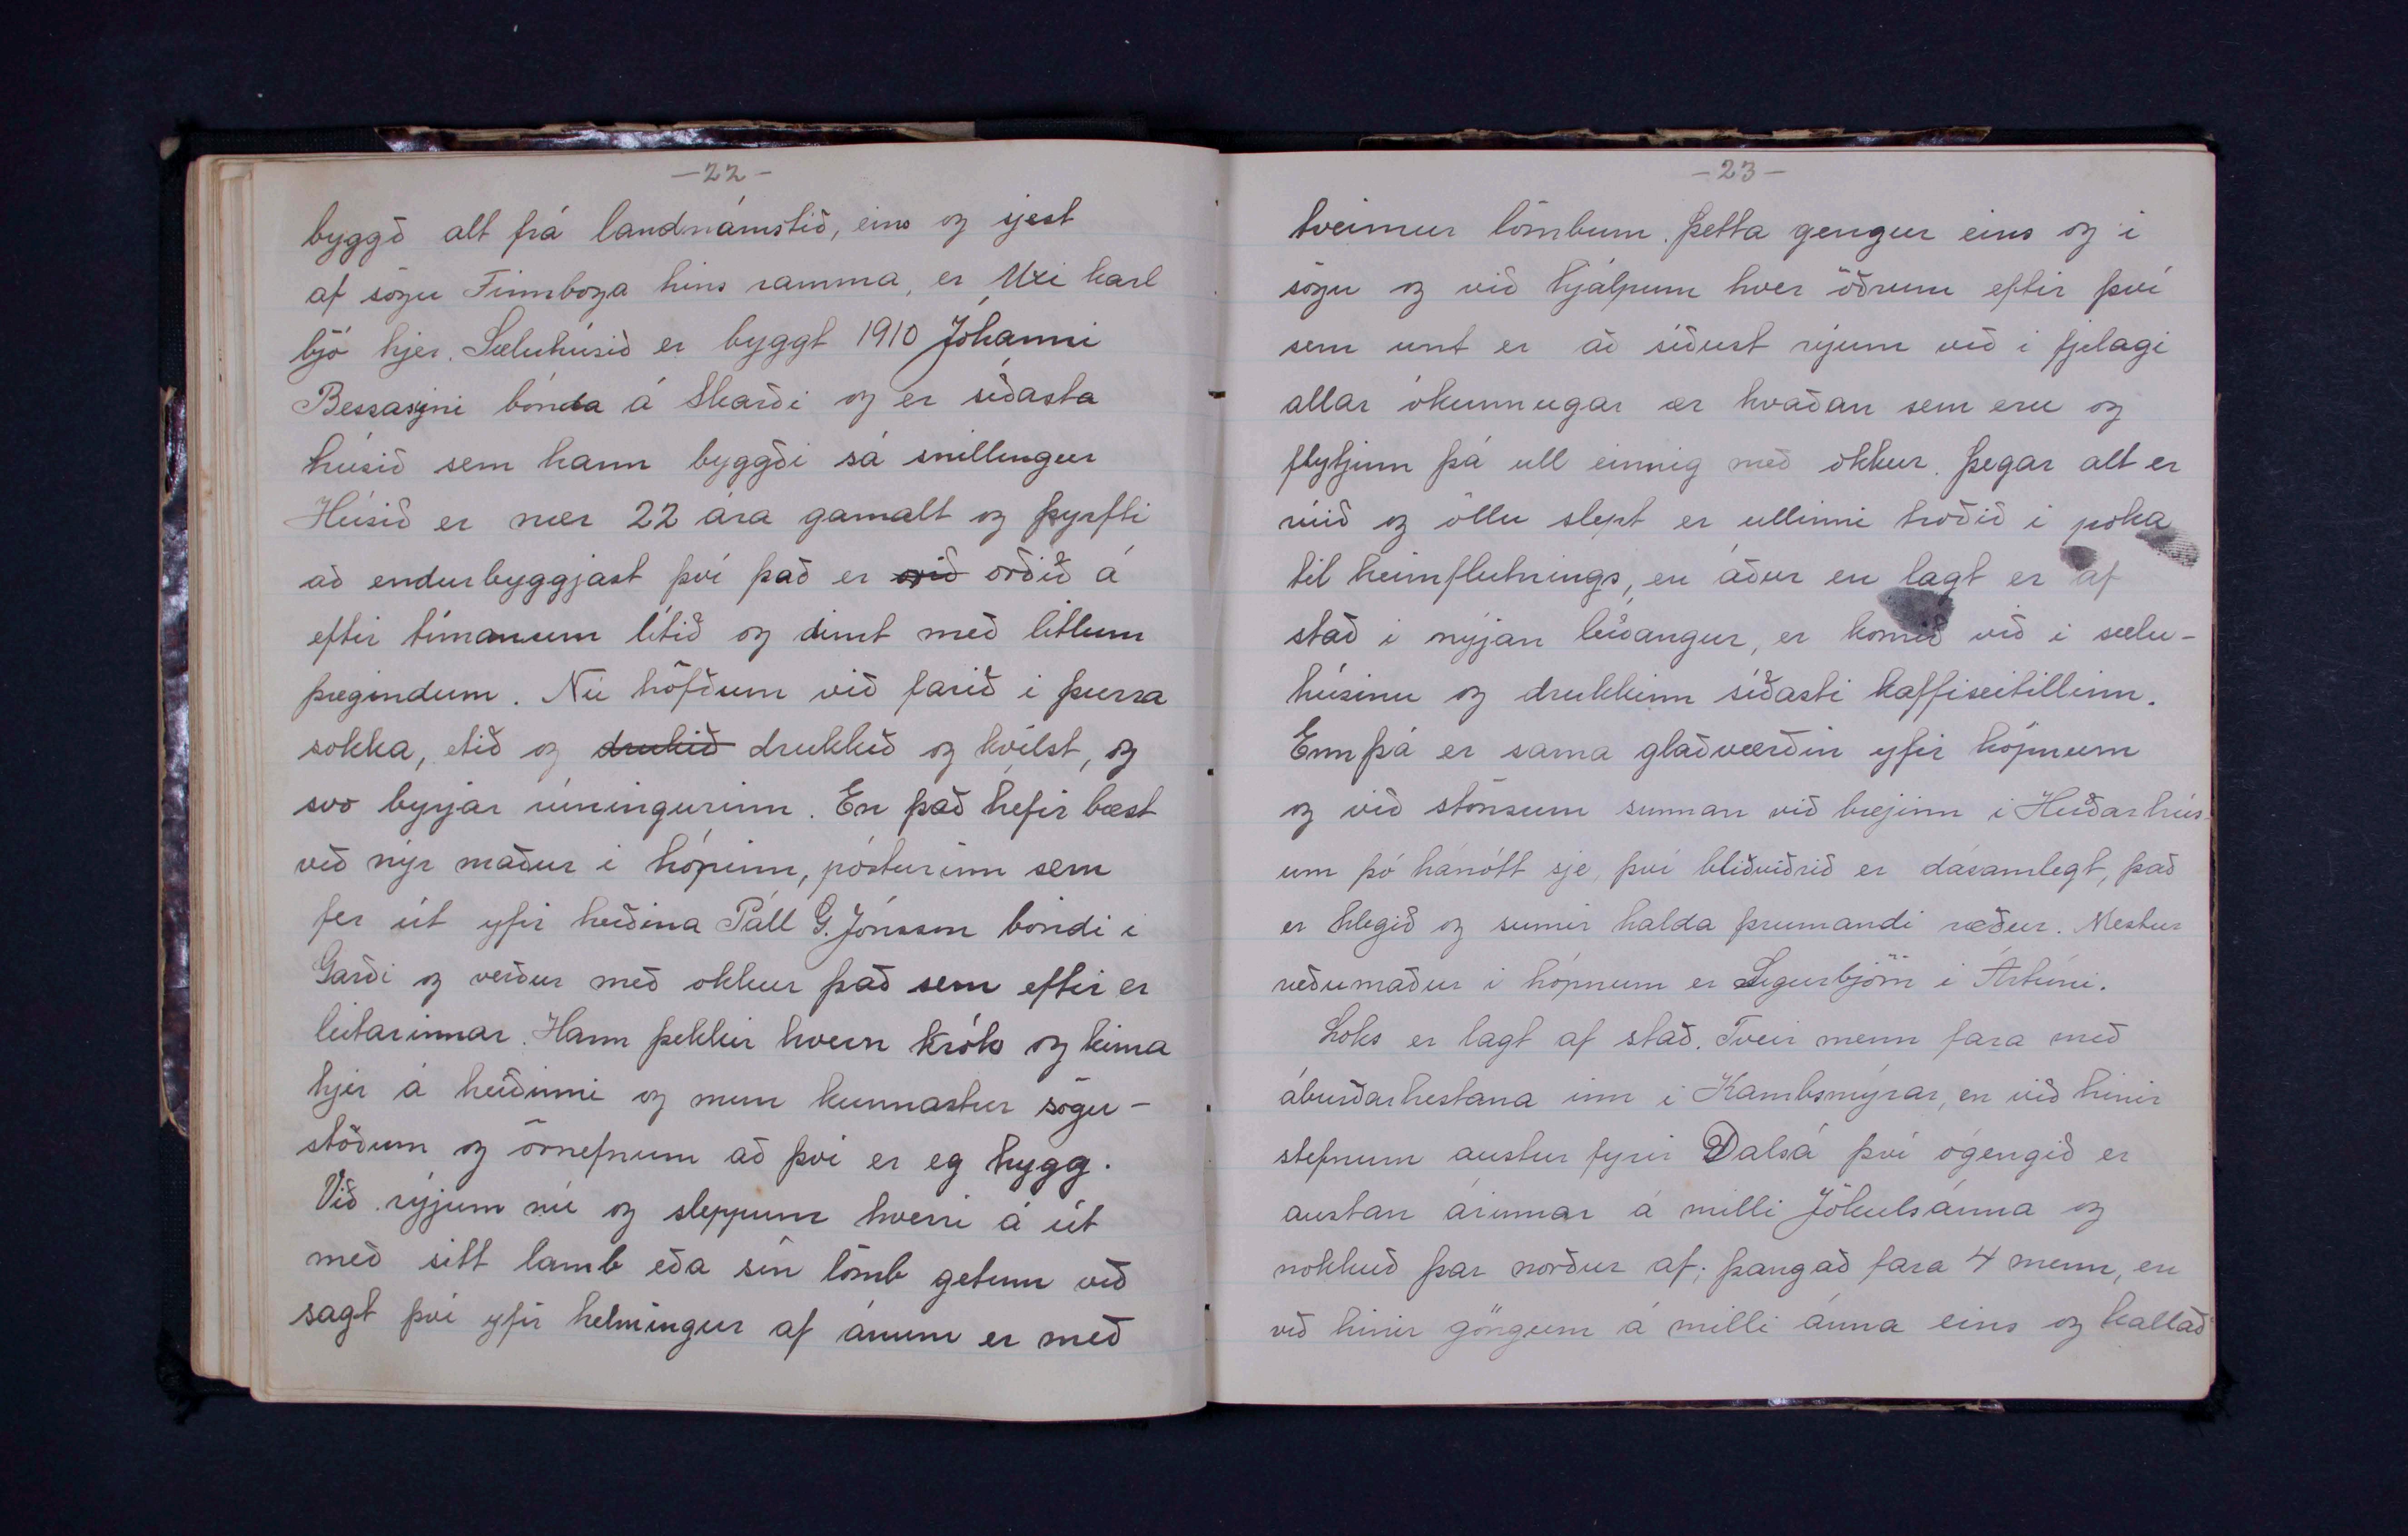 -22-
byggð alt frá landnámstíð, eins og sjest
af sögu Finnboga hins ramma, er Uxi karl
bjó hjer. Sæluhúsið er byggt 1910 Jóhanni
Bessasyni bónda á Skarði og er síðasta
húsið sem hann byggði sá snillingur
Húsið er nær 22 ára gamalt og þyrfti
að endurbyggjast því það er orðið á
eftir tímanum lítið og dimt með litlum
þægindum. Nú höfðum við farið í þurra
sokka, etið og drukið drukkið og hvílst, og
svo byrjar rúningurinn. En það hefir bæst
við nýr maður í hópinn, pósturinn sem
fer út yfir heiðina Páll G. Jónsson bóndi í
Garði og verður með okkur það sem eftir er
leitarinnar. Hann þekkir hvern krók og kima
hjer á heiðinni og mun kunnastur sögu-
stöðum og örnefnum að því er eg hygg.
Við rýjum nú og sleppum hverri á út
með sitt lamb eða sín lömb getum við
sagt því yfir helmingur af ánum er með
-23-
tveimur lömbum. Þetta gengur eins og í
sögu og við hjálpum hver öðrum eftir því
sem unt er að síðust rýjum við í fjelagi
allar ókunnugar ær hvaðan sem eru og
flytjum þá ull einnig með okkur. Þegar alt er
rúið og öllu slept er ullinni troðið í poka
til heimflutnings, en áður en lagt er af
stað í nýjan leiðangur, er komið við í sælu-
húsinu og drukkinn síðasti kaffiseitillinn.
Ennþá er sama glaðværðin yfir hópnum
og við stönsum sunnan við bæjinn í Heiðarhús-
um þó hánótt sje, því blíðviðrið er dásamlegt, það
er hlegið og sumir halda þrumandi ræður. Mestur
ræðumaður í hópnum er Sigurbjörn í Ártúni.
Loks er lagt af stað. Tveir menn fara með
áburðarhestana inn í Kambsmýrar, en við hinir
stefnum austur fyrir Dalsá því ógengið er
austan árinnar á milli Jökulsánna og
nokkuð þar norður af; þangað fara 4 menn, en
við hinir göngum á milli ánna eins og kallað